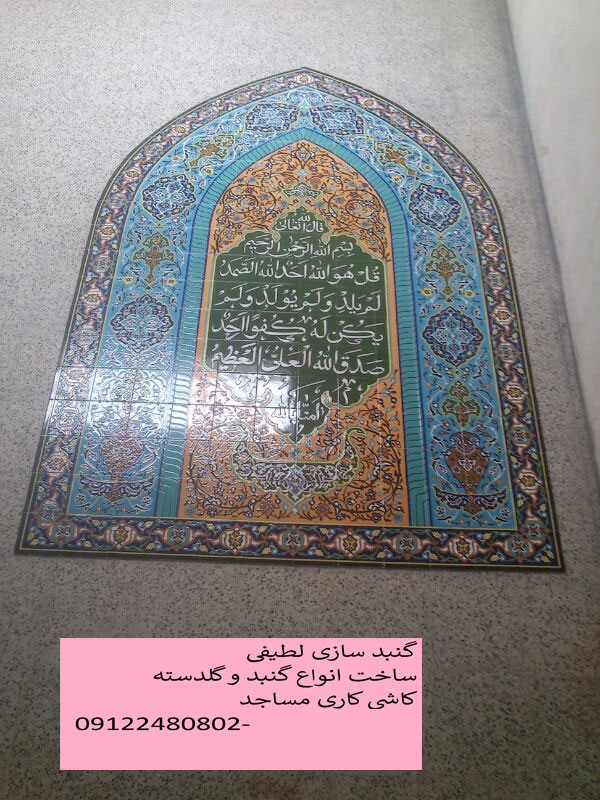 قال الله تعالی
بِسْمِ اللهِ الرَّحْمنِ الرَّحیمِ
قُلْ هُوَ اللهُ اَحَدٌ اَللهُ الصَّمَدُ
لَمْ یَلِدْ وَ لَمْ یُولَدْ وَ لَمْ
یَکُنْ لَهُ کُفُوًا اَحَدٌ
صَدَقَ اللهُ الْعَلِیُّ الْعَظیمُ
گنبد سازی لطیفی
ساخت انواع گنبد و گلدسته
کاشی کاری مساجد
09122480802-